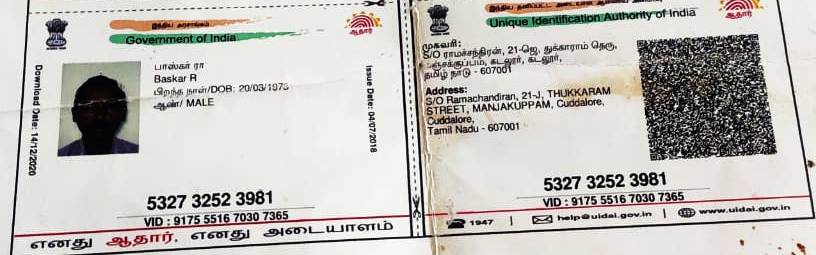 இந்திய அரசாங்கம்
Government of India
ஆதார்
Download Date: 14/12/2020
பாஸ்கர் ரா
Baskar R
பிறந்த நாள்/DOB: 20/03/1975
ஆண்/ MALE
Issue Date: 04/07/2018
5327 3252 3981
VID : 9175 5516 7030 7365
எனது ஆதார், எனது அடையாளம்
இந்திய தனிப்பட்ட அடையாள
Unique Identification Authority of India
ஆதார்
முகவரி:
S/O ராமச்சந்திரன், 21-ஜெ, துக்காராம் தெரு,
மஞ்சக்குப்பம், கடலூர், கடலூர்,
தமிழ் நாடு - 607001
Address:
S/O Ramachandiran, 21-J, THUKKARAM
STREET, MANJAKUPPAM, Cuddalore,
Cuddalore,
Tamil Nadu - 607001
5327 3252 3981
VID : 9175 5516 7030 7365
1947 | help@uidai.gov.in | www.uidai.gov.in